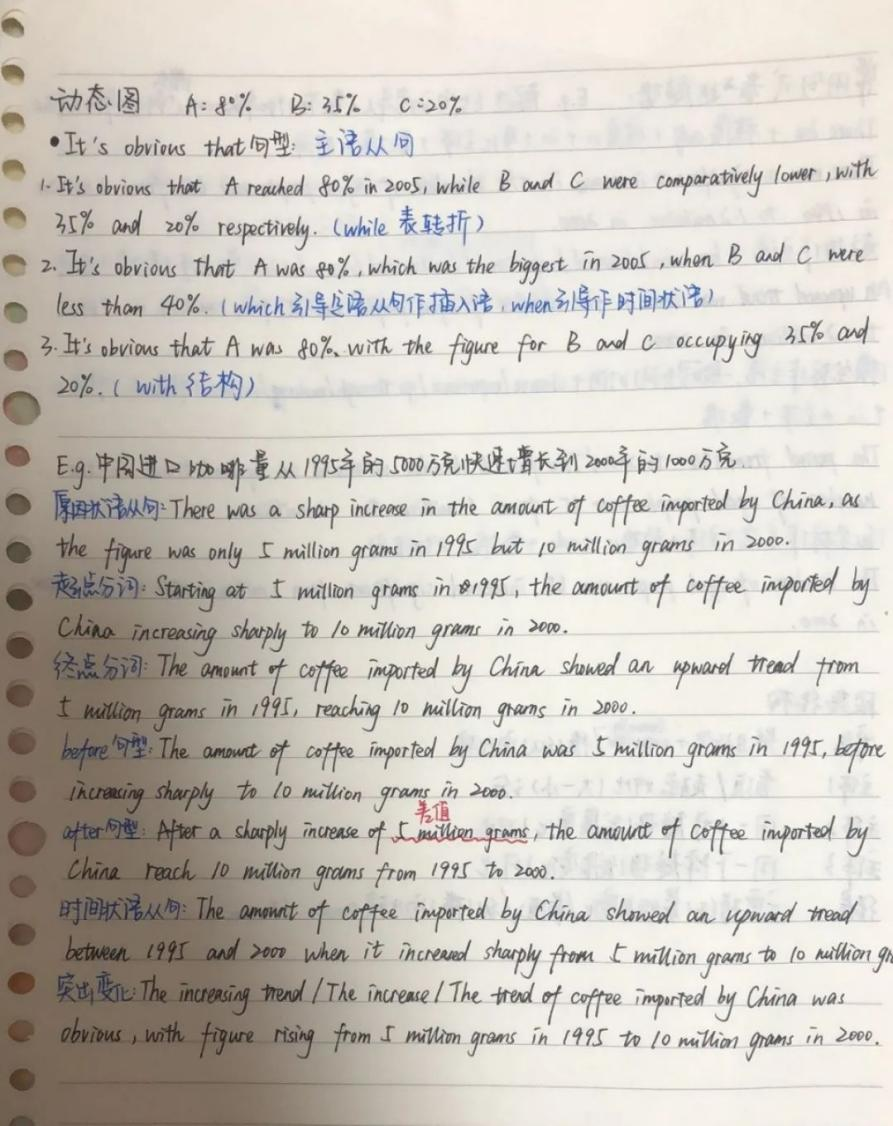 动态图 A: 80% B: 35% C: 20%
•It's obvious that句型: 主语从句
1. It's obvious that A reached 80% in 2005, while B and C were comparatively lower, with
35% and 20% respectively. (while 表转折)
2. It's obvious that A was 80%, which was the biggest in 2005, when B and C were
less than 40%. (which引导定语从句作插入语, when引导作时间状语)
3. It's obvious that A was 80%, with the figure for B and C occupying 35% and
20%. (with 结构)
E.g. 中国进口咖啡量从1995年的5000万克快速增长到2000年的1000万克
原因状语从句: There was a sharp increase in the amount of coffee imported by China, as
the figure was only 5 million grams in 1995 but 10 million grams in 2000.
起点分词: Starting at 5 million grams in 1995, the amount of coffee imported by
China increasing sharply to 10 million grams in 2000.
终点分词: The amount of coffee imported by China showed an upward tread from
5 million grams in 1995, reaching 10 million grams in 2000.
before句型: The amount of coffee imported by China was 5 million grams in 1995, before
increasing sharply to 10 million grams in 2000.
差值
after句型: After a sharply increase of 5 million grams, the amount of coffee imported by
China reach 10 million grams from 1995 to 2000.
时间状语从句: The amount of coffee imported by China showed an upward tread
between 1995 and 2000 when it increased sharply from 5 million grams to 10 million gr
突出变化: The increasing trend / The increase / The trend of coffee imported by China was
obvious, with figure rising from 5 million grams in 1995 to 10 million grams in 2000.